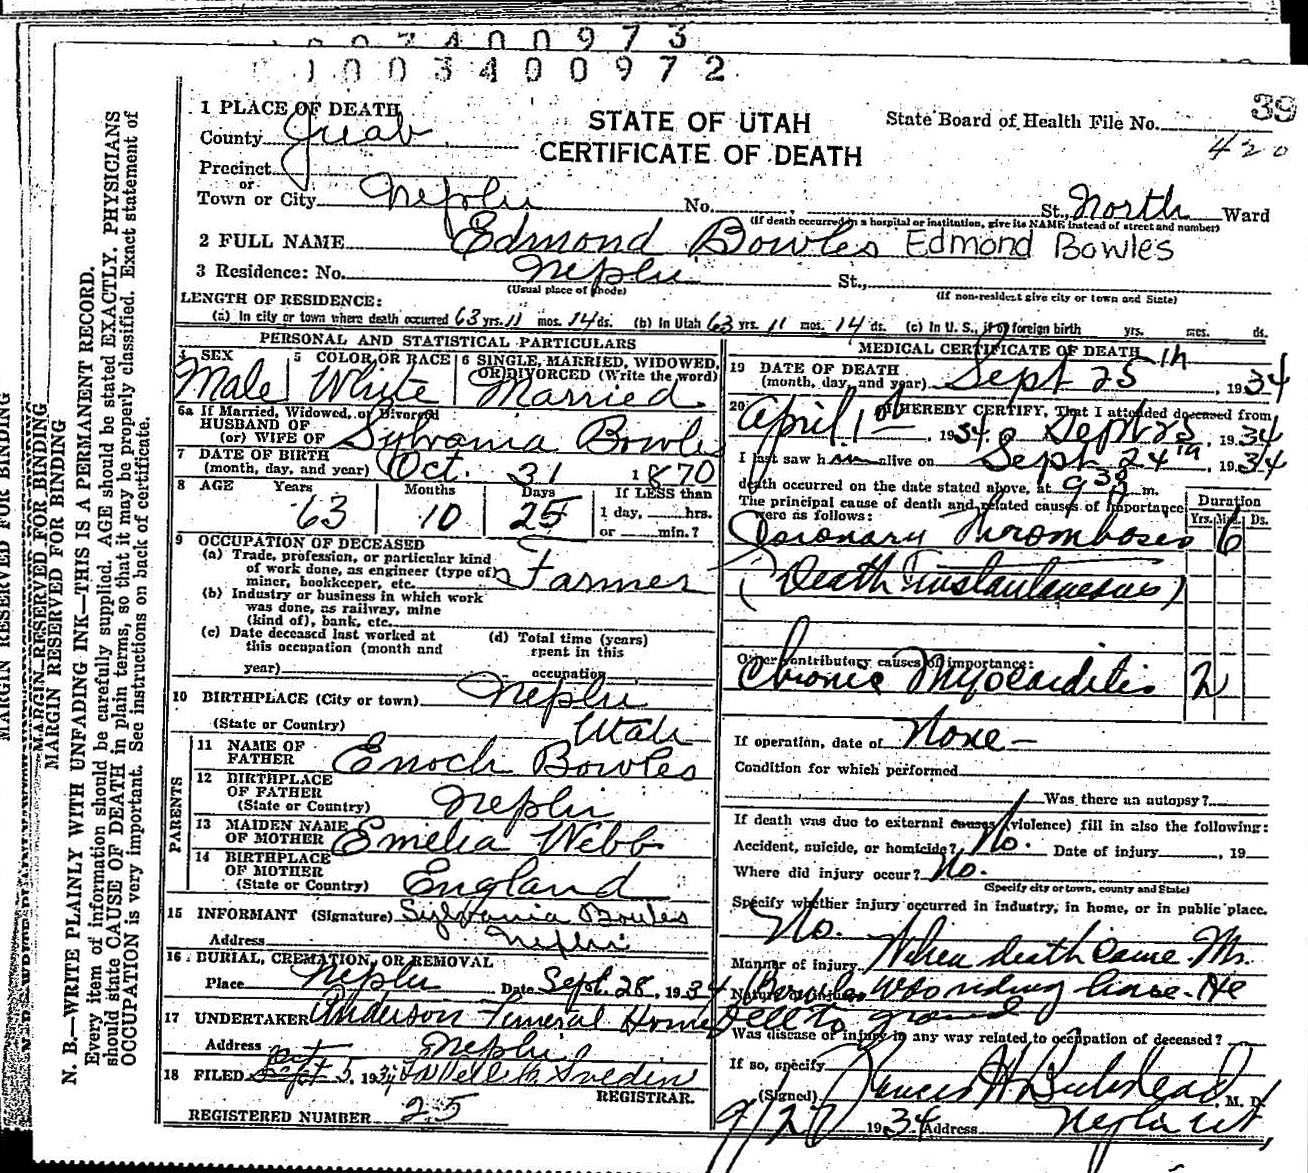 1003400973
1003400972
39
1 PLACE OF DEATH
STATE OF UTAH
CERTIFICATE OF DEATH
State Board of Health File No.
420
County Juab
Precinct
or
Town or City Nephi No. St., North Ward
(If death occurred in a hospital or institution, give its NAME instead of street and number)
2 FULL NAME Edmond Bowles Edmond Bowles
3 Residence: No. Nephi St.,
(Usual place of abode) (If non-resident give city or town and State)
LENGTH OF RESIDENCE:
(a) In city or town where death occurred 63 yrs. 11 mos. 14 ds. (b) In Utah 63 yrs. 11 mos. 14 ds. (c) In U. S., if of foreign birth yrs. mos. ds.
PERSONAL AND STATISTICAL PARTICULARS
4 SEX 5 COLOR OR RACE 6 SINGLE, MARRIED, WIDOWED, OR DIVORCED (Write the word)
Male White Married
6a If Married, Widowed, or Divorced
HUSBAND OF
(or) WIFE OF Sylvania Bowles
7 DATE OF BIRTH
(month, day, and year) Oct. 31 1870
8 AGE Years Months Days If LESS than
63 10 25 1 day, hrs.
or min.?
9 OCCUPATION OF DECEASED
(a) Trade, profession, or particular kind
of work done, as engineer (type of)
miner, bookkeeper, etc. Farmer
(b) Industry or business in which work
was done, as railway, mine
(kind of), bank, etc.
(c) Date deceased last worked at
this occupation (month and
year)
(d) Total time (years)
spent in this
occupation
10 BIRTHPLACE (City or town) Nephi
(State or Country) Utah
PARENTS
11 NAME OF
FATHER Enoch Bowles
12 BIRTHPLACE
OF FATHER
(State or Country) Nephi
13 MAIDEN NAME
OF MOTHER Emelia Webb
14 BIRTHPLACE
OF MOTHER
(State or Country) England
15 INFORMANT (Signature) Sylvania Bowles
Address Nephi
16 BURIAL, CREMATION, OR REMOVAL
Place Nephi Date Sept. 28, 1934
17 UNDERTAKER Anderson Funeral Home
Address Nephi
18 FILED Sept Oct 5, 1934
REGISTRAR.
REGISTERED NUMBER 25
MEDICAL CERTIFICATE OF DEATH
19 DATE OF DEATH
(month, day, and year) Sept 25th, 1934
20 I HEREBY CERTIFY, That I attended deceased from
April 1st, 1934 Sept 25, 1934
I last saw him alive on Sept 24th, 1934
death occurred on the date stated above, at 9 30 A m.
The principal cause of death and related causes of importance
were as follows:
Duration
Yrs. Mos. Ds.
Coronary Thromboses 6
(Death Instantaneous)
Other contributory causes of importance:
Chronic Myocarditis 2
If operation, date of None
Condition for which performed
Was there an autopsy?
If death was due to external causes (violence) fill in also the following:
Accident, suicide, or homicide? No. Date of injury , 19
Where did injury occur? No.
(Specify city or town, county and State)
Specify whether injury occurred in industry, in home, or in public place.
No.
Manner of injury When death came Mr.
Nature of injury Bowles was riding horse. He
fell to ground
Was disease or injury in any way related to occupation of deceased?
If so, specify
(Signed) M. D.
9/27 1934 Address Nephi Ut,
MARGIN RESERVED FOR BINDING
MARGIN RESERVED FOR BINDING
MARGIN RESERVED FOR BINDING
N. B.—WRITE PLAINLY WITH UNFADING INK—THIS IS A PERMANENT RECORD.
Every item of information should be carefully supplied. AGE should be stated EXACTLY. PHYSICIANS
should state CAUSE OF DEATH in plain terms, so that it may be properly classified. Exact statement of
OCCUPATION is very important. See instructions on back of certificate.